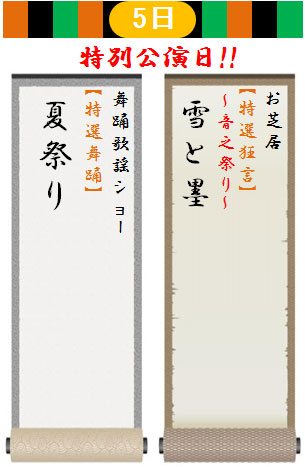 5日
特別公演日!!
お芝居
【特選狂言】
～音之祭り～
雪と墨
舞踊歌謡ショー
【特選舞踊】
夏祭り